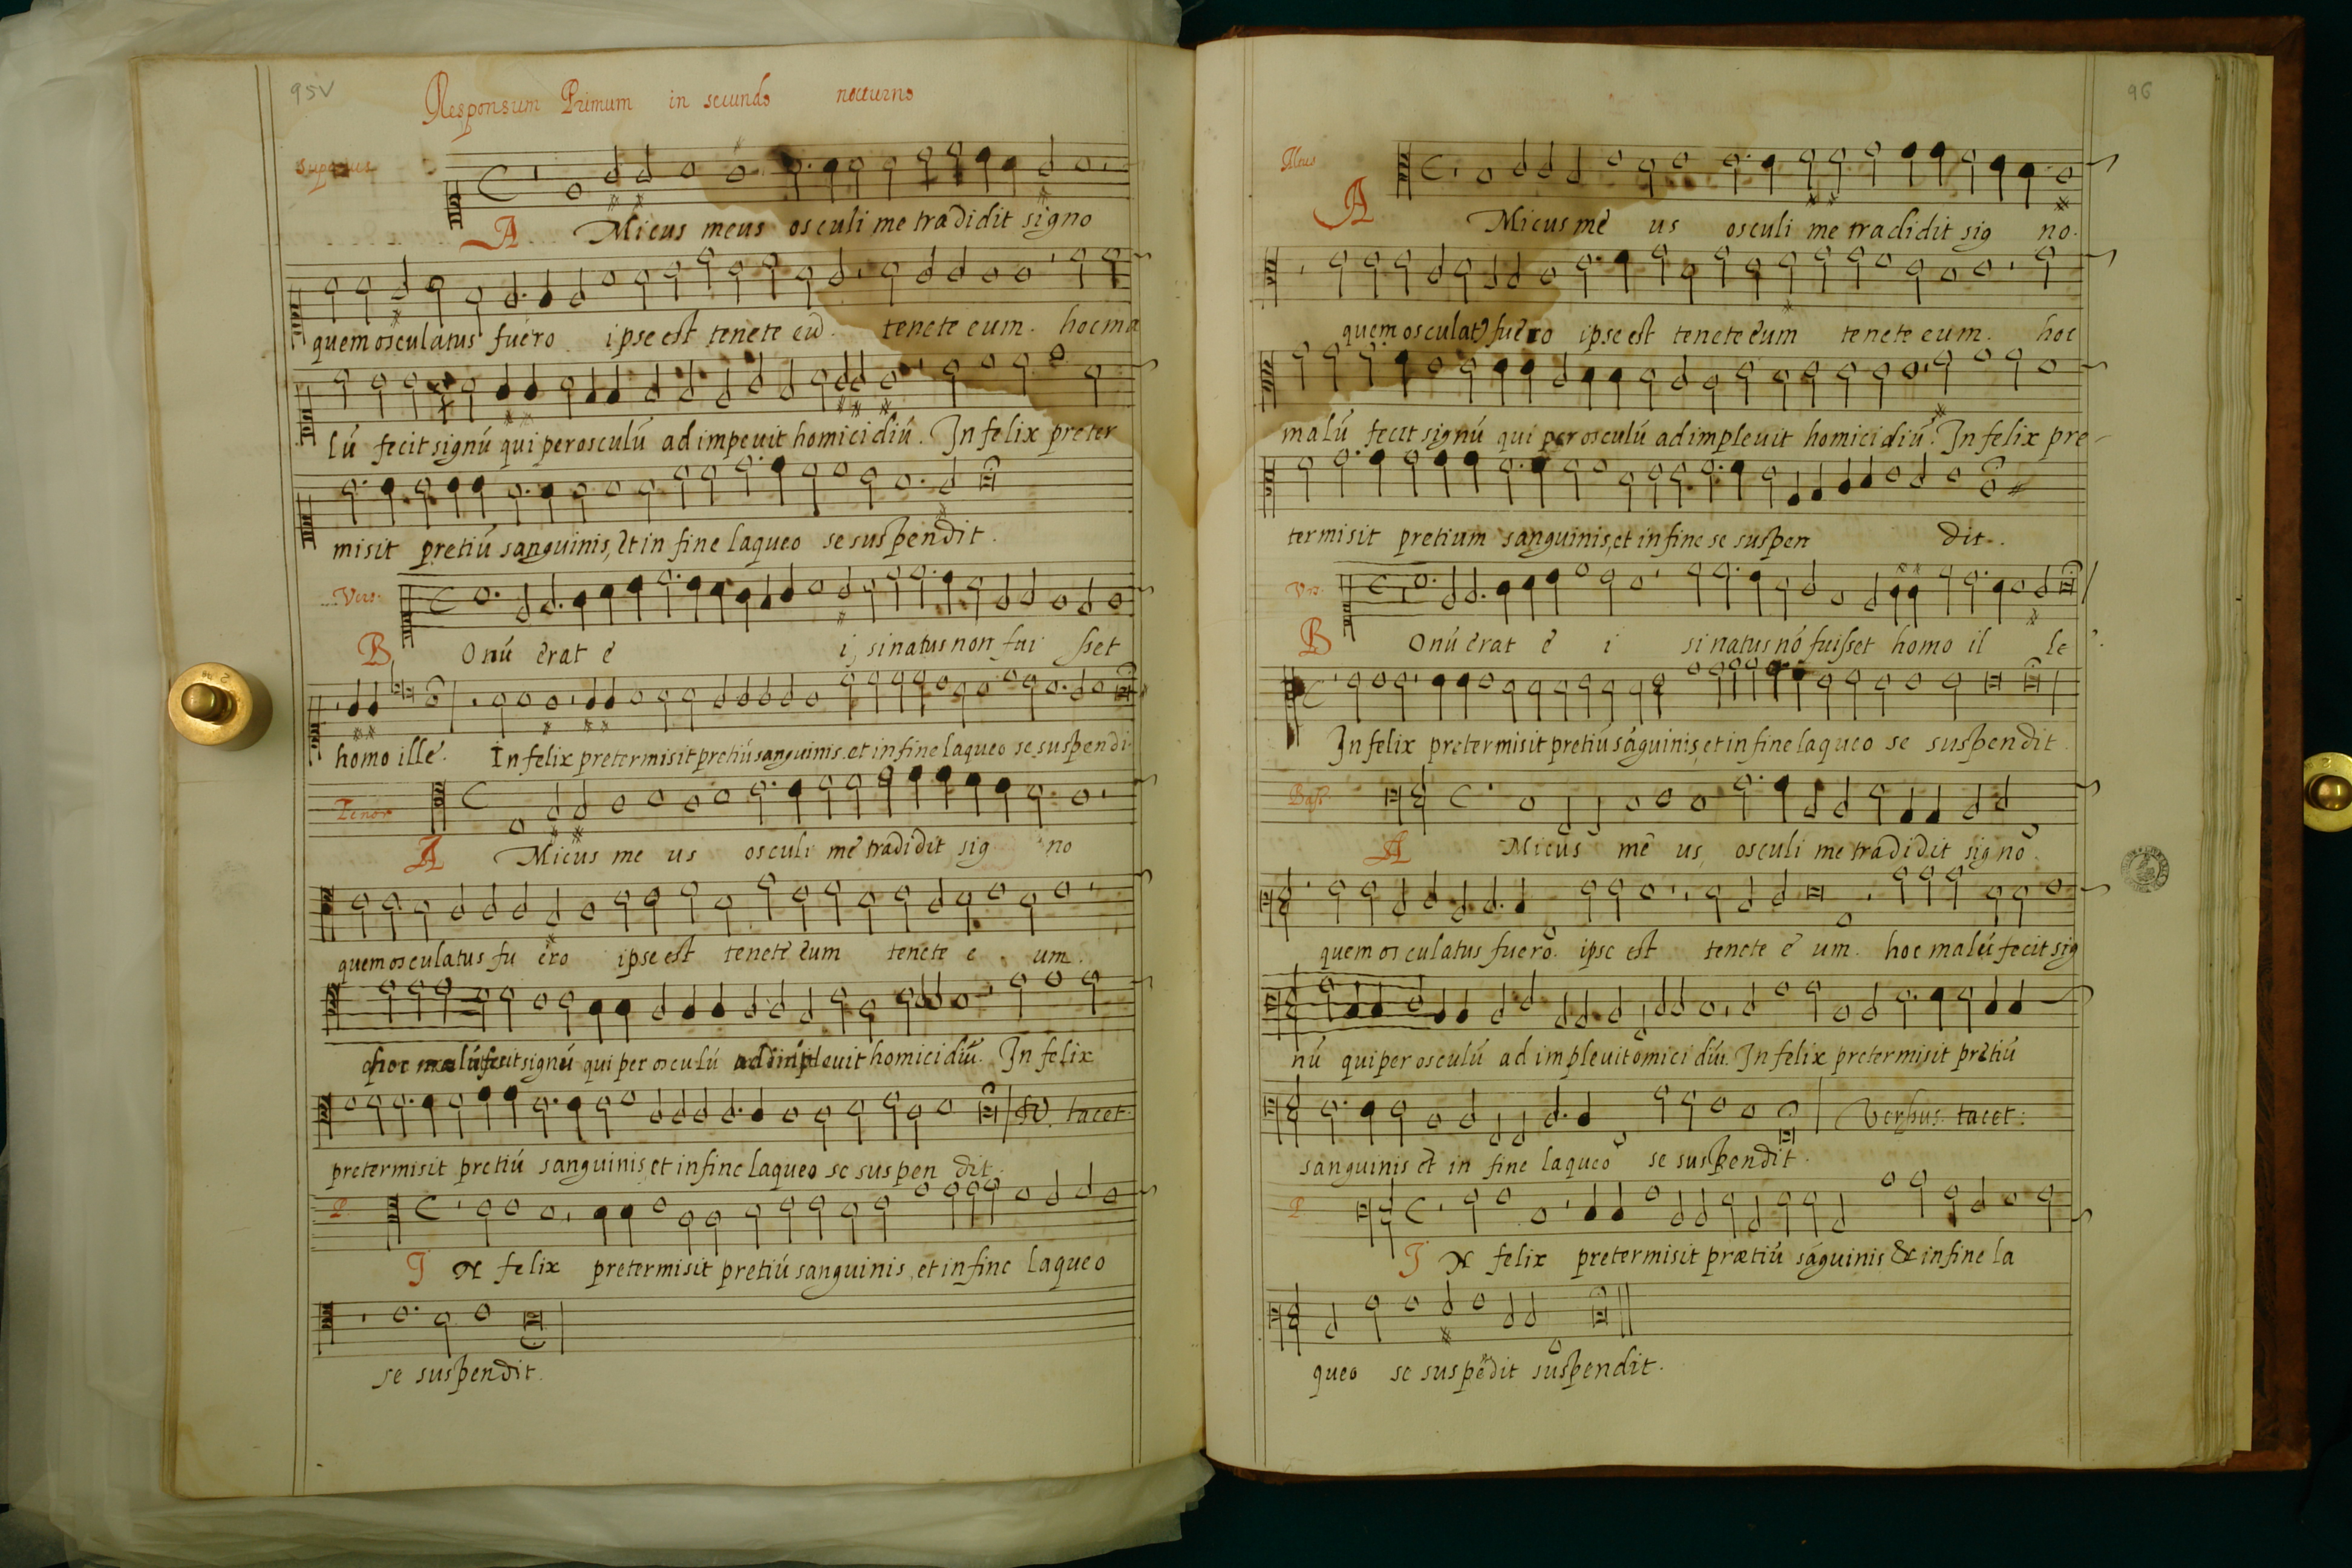 95v
Responsum Primum in secundo nocturno
A Micus meus osculi me tradidit signo
quem osculatus fuero ipse est tenete eū. tenete eum. hoc ma
lū fecit signū qui per osculū adimpeuit homicidiū. In felix preter
misit pretiū sanguinis, et in fine laqueo se suspendit.
Vers.
B Onū erat e i, si natus non fui sset
homo ille. In felix pretermisit pretiū sanguinis. et in fine laqueo se suspendi
Tenor
A Micus me us osculi me tradidit sig no
quem osculatus fu ero ipse est tenete eum tenete e um.
hoc malū fecit signū qui per osculū adimplevit homicidiū. In felix
tacet.
pretermisit pretiū sanguinis, et in fine laqueo se suspen dit.
P.
I N felix pretermisit pretiū sanguinis, et in fine laqueo
se suspendit.
96
Altus
A Micus me us osculi me tradidit sig no.
quem osculat9 fuero ipse est tenete eum tenete eum. hoc
malū fecit signū qui per osculū adimpleuit homicidiū. In felix pre-
termisit pretium sanguinis, et in fine se suspen dit.
Vrs.
B Onū erat e i si natus nō fuisset homo il le.
In felix pretermisit pretiū sāguinis, et in fine laqueo se suspendit.
Bass.
A Micus me us, osculi me tradidit signo.
quem osculatus fuero. ipse est tenete e um. hoc malū fecit sig
nū qui per osculū adimpleuit omicidiū. In felix pretermisit pretiū
Versus. tacet:
sanguinis et in fine laqueo se suspendit.
P.
I N felix pretermisit prætiū sāguinis & in fine la
queo se suspēdit suspendit.